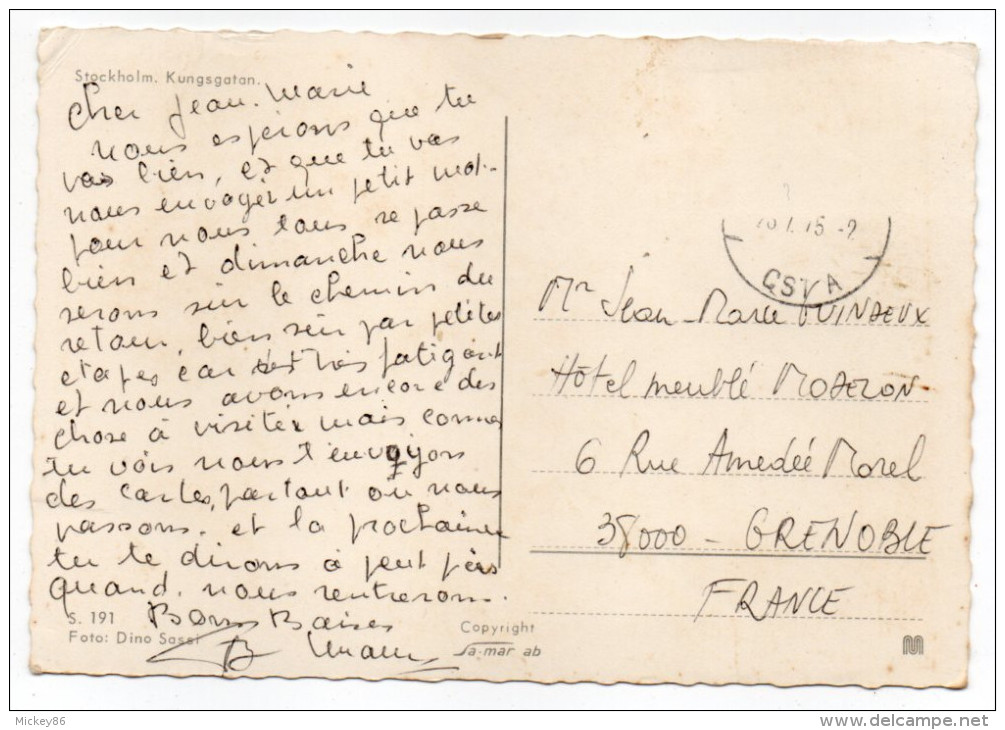 Stockholm. Kungsgatan.
Cher Jean-Marie
nous espérons que tu
vas bien, et que tu vas
nous envoyer un petit mot.
pour nous tous se passe
bien et dimanche nous
serons sur le chemin du
retour, bien sûr par petites
etapes car très fatigant
et nous avons encore des
chose à visiter mais comme
tu vois nous t'envoyons
des cartes, partout où nous
passons. et la prochaine
tu te dirons à peut près
quand, nous rentrerons.
Bons Baises
S. 191
Foto: Dino Sassi
Copyright
Sa-mar ab
GSVA
Mr Jean-Marie
Hôtel meublé MODERON
6 Rue Amedée Morel
38000 - GRENOBLE
FRANCE
Mickey86
www.delcampe.net